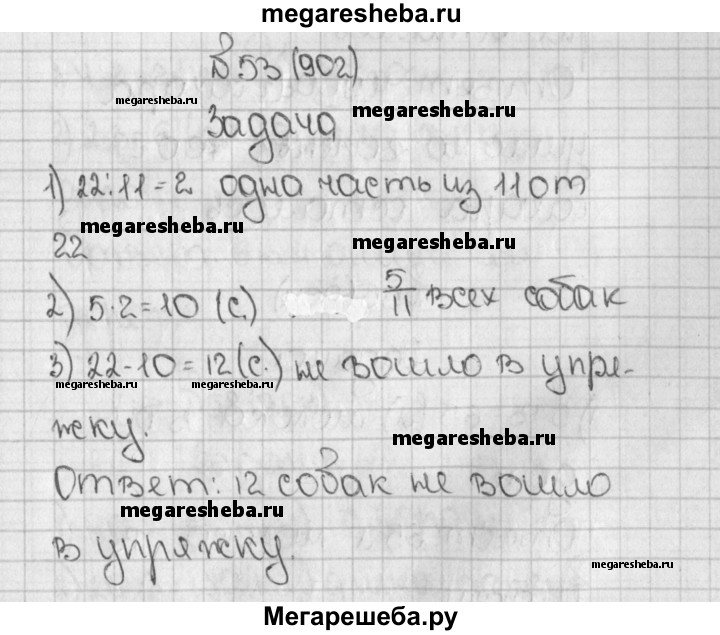 megaresheba.ru
№ 53 (902)
megaresheba.ru
megaresheba.ru
Задача
1) 22:11=2 одна часть из 11 от
megaresheba.ru
megaresheba.ru
22
2) 5·2=10 (с.) 5/11 всех собак
3) 22-10=12 (с.) не вошло в упря-
megaresheba.ru
megaresheba.ru
жку.
megaresheba.ru
Ответ: 12 собак не вошло
megaresheba.ru
в упряжку.
megaresheba.ru
Мегарешеба.ру